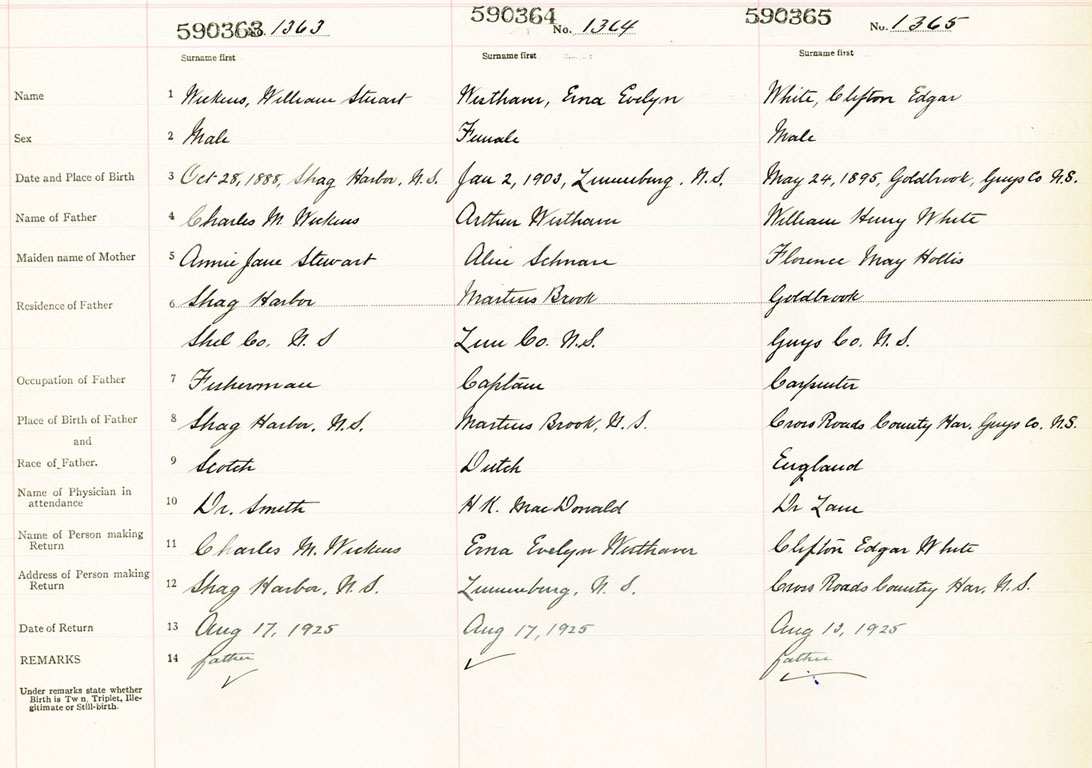 590363 No. 1363
590364 No. 1364
590365 No. 1365
Surname first Surname first Surname first
Name 1 Wickens, William Stuart Westhaver, Erna Evelyn White, Clifton Edgar
Sex 2 Male Female Male
Date and Place of Birth 3 Oct 28, 1888, Shag Harbor, N.S. Jan 2, 1903, Lunenburg, N.S. May 24, 1895, Goldbrook, Guys Co N.S.
Name of Father 4 Charles M. Wickens Arthur Westhaver William Henry White
Maiden name of Mother 5 Annie Jane Stewart Alice Schnare Florence May Hollis
Residence of Father 6 Shag Harbor Martins Brook Goldbrook
Shel Co. N.S Lun Co. N.S. Guys Co. N.S.
Occupation of Father 7 Fisherman Captain Carpenter
Place of Birth of Father 8 Shag Harbor, N.S. Martins Brook, N.S. Cross Roads County Har. Guys Co. N.S.
and
Race of Father. 9 Scotch Dutch England
Name of Physician in attendance 10 Dr. Smith H K. MacDonald Dr
Name of Person making Return 11 Charles M. Wickens Erna Evelyn Westhaver Clifton Edgar White
Address of Person making Return 12 Shag Harbor, N.S. Lunenburg, N.S. Cross Roads Country Har, N.S.
Date of Return 13 Aug 17, 1925 Aug 17, 1925 Aug 13, 1925
REMARKS 14 father father
Under remarks state whether
Birth is Twn, Triplet, Ille-
gitimate or Still-birth.